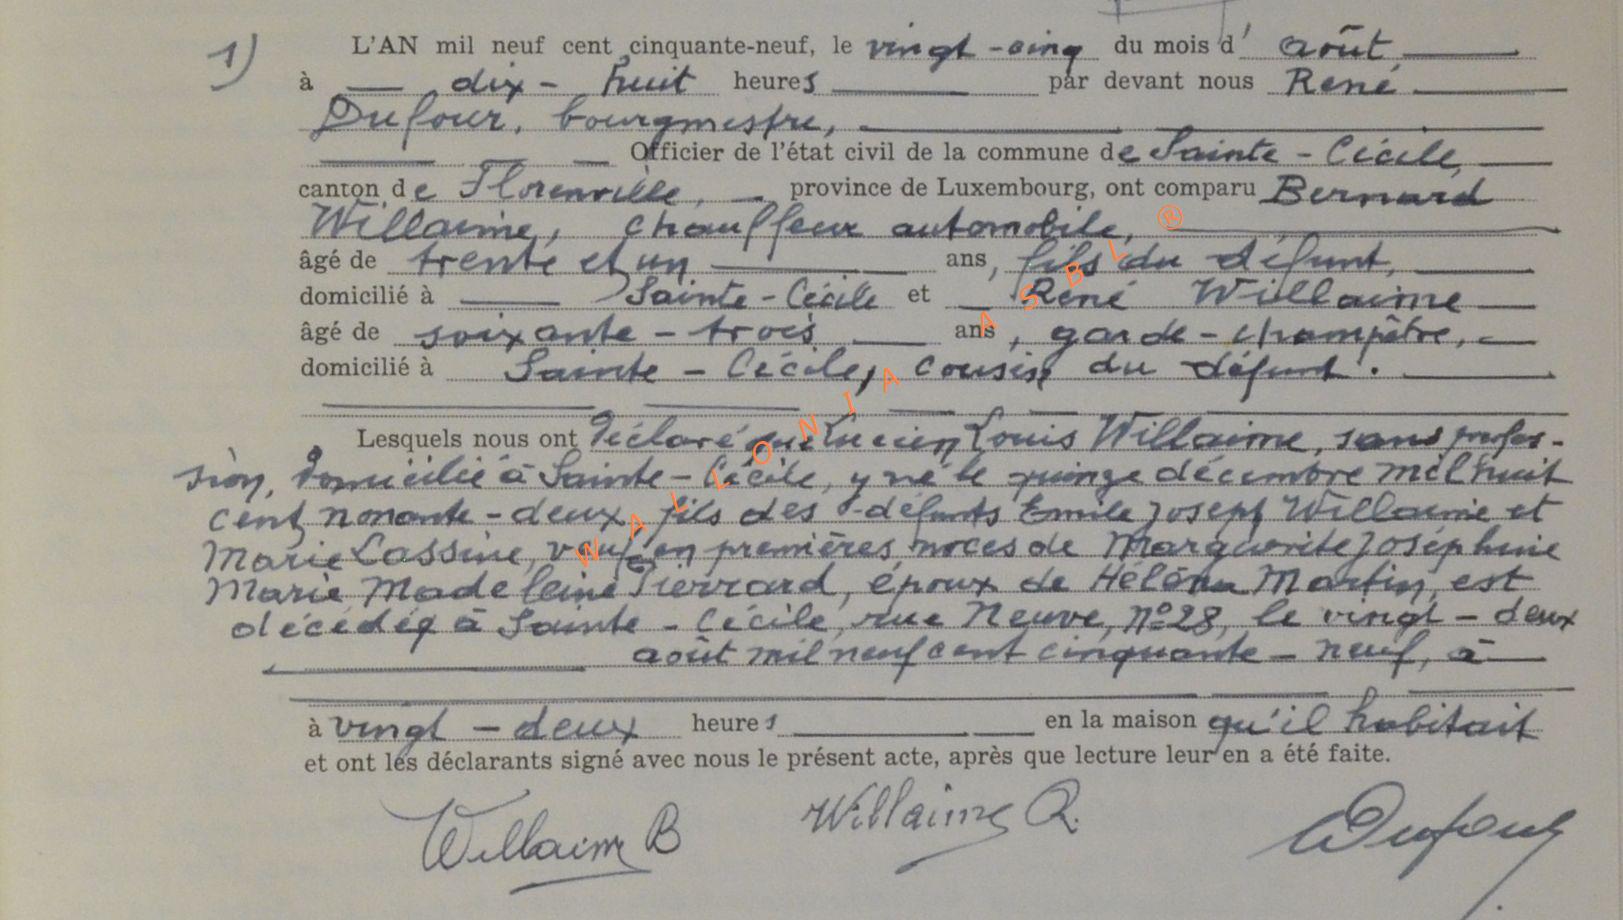 1) L'AN mil neuf cent cinquante-neuf, le vingt-cinq du mois d' août
à dix-huit heures par devant nous René
Dufour, bourgmestre,
Officier de l'état civil de la commune de Sainte-Cécile,
canton de Florenville, province de Luxembourg, ont comparu Bernard
Willaime, chauffeur automobile,
âgé de trente et un ans, fils du défunt,
domicilié à Sainte-Cécile et René Willaime
âgé de soixante-trois ans, garde-champêtre,
domicilié à Sainte-Cécile, cousin du défunt.
Lesquels nous ont déclaré que Lucien Louis Willaime, sans profes-
sion, domicilié à Sainte-Cécile, y né le quinze décembre mil huit
cent nonante-deux, fils des défunts Emile Joseph Willaime et
Marie Lassine, veuf en premières noces de Marguerite Joséphine
Marie Madeleine Pierrard, époux de Héléna Martin, est
décédé à Sainte-Cécile, rue Neuve, n°28, le vingt-deux
août mil neuf cent cinquante-neuf, à
à vingt-deux heures en la maison qu'il habitait
et ont les déclarants signé avec nous le présent acte, après que lecture leur en a été faite.
Willaime B Willaime R. Dufour
WALLONIA ASBL ®